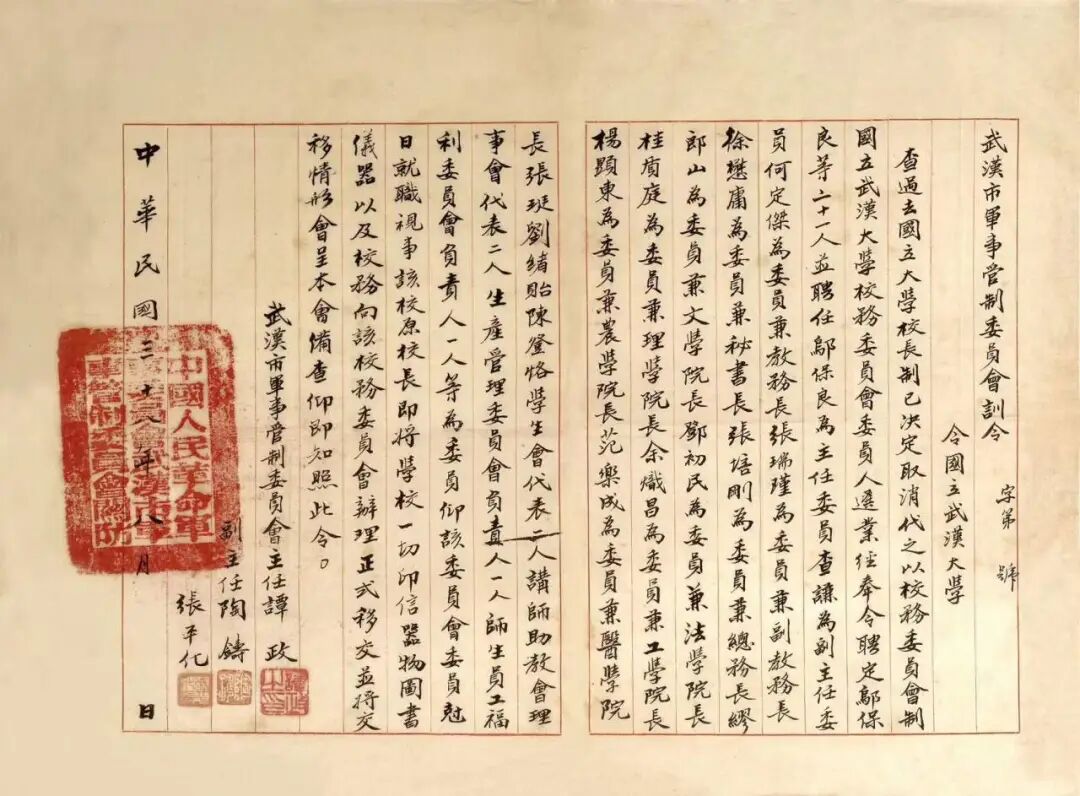 武漢市軍事管制委員會訓令
字第　號
令國立武漢大學
查過去國立大學校長制已決定取消代之以校務委員會制
國立武漢大學校務委員會委員人選業經奉令聘定鄔保
良等二十一人並聘任鄔保良為主任委員查謙為副主任委
員何定傑為委員兼教務長張瑞瑾為委員兼副教務長
徐懋庸為委員兼秘書長張培剛為委員兼總務長繆
郎山為委員兼文學院長鄧初民為委員兼法學院長
桂質庭為委員兼理學院長余熾昌為委員兼工學院長
楊顯東為委員兼農學院長范樂成為委員兼醫學院
長張珽劉緒貽陳登恪學生會代表二人講師助教會理
事會代表二人生產管理委員會負責人一人師生員工福
利委員會負責人一人等為委員仰該委員會委員尅
日就職視事該校原校長即將學校一切印信器物圖書
儀器以及校務向該校務委員會辦理正式移交並將交
移情形會呈本會備查仰即知照此令。
武漢市軍事管制委員會主任譚政
副主任陶鑄
張平化
中華民國三十八年八月　日
中國人民革命軍
軍管制委員會關防